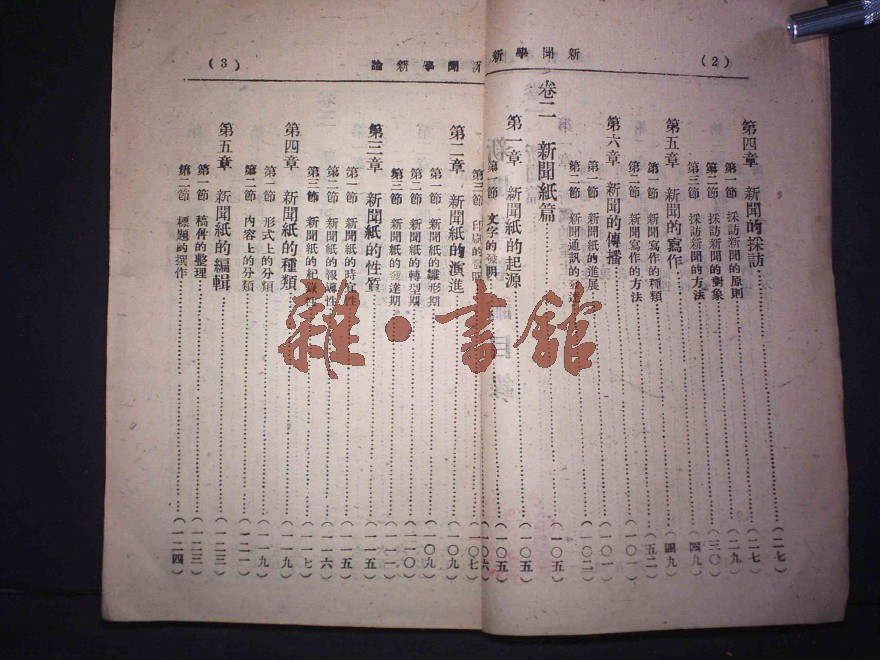 (2)
新聞學新
第四章 新聞的採訪……(二七)
第一節 採訪新聞的原則……(二七)
第二節 採訪新聞的對象……(二九)
第三節 採訪新聞的方法……(三〇)
第五章 新聞的寫作……(四九)
第一節 新聞寫作的種類……(四九)
第二節 新聞寫作的方法……(五二)
第六章 新聞的傳播……(一〇一)
第一節 新聞紙的進展……(一〇一)
第二節 新聞通訊的發達……(一〇二)
卷二 新聞紙篇……(一〇五)
第一章 新聞紙的起源……(一〇五)
第一節 文字的發明……(一〇五)
(一〇六)
新聞學新論
(3)
第三節 印刷的發明……(一〇七)
第二章 新聞紙的演進……(一〇九)
第一節 新聞紙的雛形期……(一〇九)
第二節 新聞紙的轉型期……(一一〇)
第三節 新聞紙的發達期……(一一一)
第三章 新聞紙的性質……(一一五)
第一節 新聞紙的時宜性……(一一五)
第二節 新聞紙的報導性……(一一六)
第三節 新聞紙的紀錄性……(一一七)
第四章 新聞紙的種類……(一一九)
第一節 形式上的分類……(一一九)
第二節 內容上的分類……(一二一)
第五章 新聞紙的編輯……(一二三)
第一節 稿件的整理……(一二三)
第二節 標題的撰作……(一二四)
雜·書館